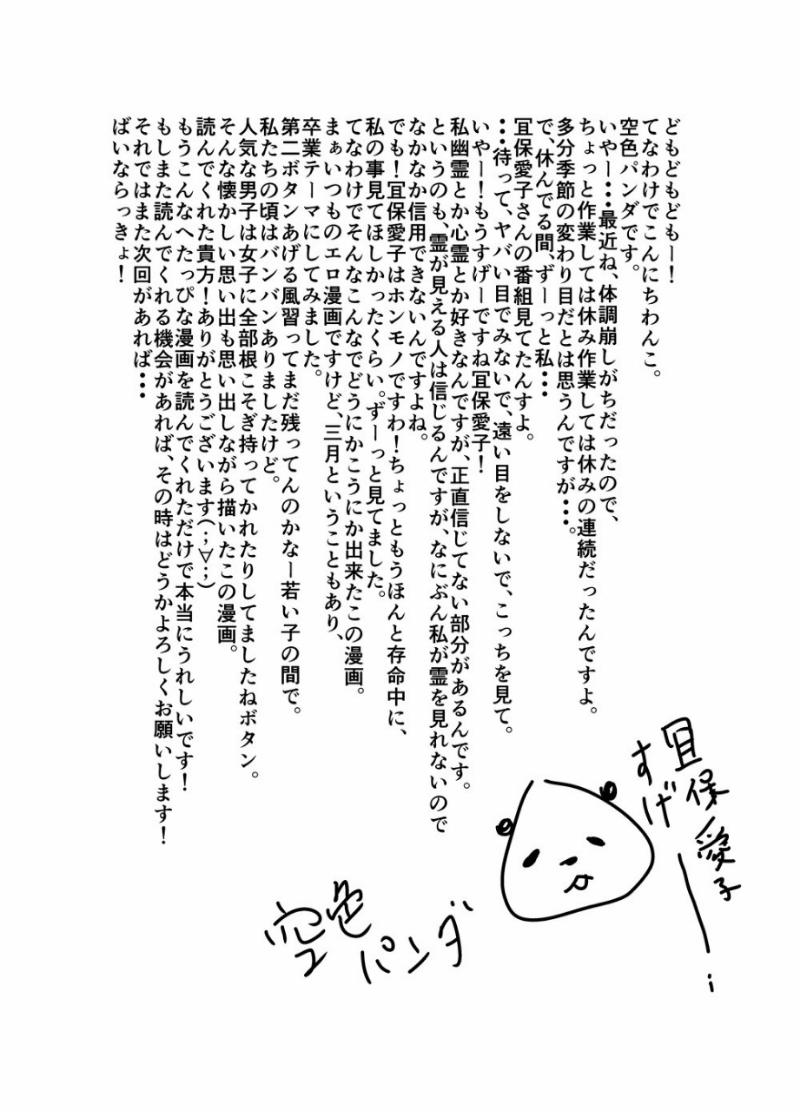 どもどもどもー!
てなわけでこんにちわんこ。
空色パンダです。
いやー・・最近ね、体調崩しがちだったので、
ちょっと作業しては休み作業しては休みの連続だったんですよ。
多分季節の変わり目だとは思うんですが・・・。
で、休んでる間、ずーっと私・・・
冝保愛子さんの番組見てたんすよ。
・・・待って、ヤバい目でみないで、遠い目をしないで、こっちを見て。
いやー!もうすげーですね冝保愛子!
私幽霊とか心霊とか好きなんですが、正直信じてない部分があるんです。
というのも、霊が見える人は信じるんですが、なにぶん私が霊を見れないので
なかなか信用できないんですよね。
でも!冝保愛子はホンモノですわ!ちょっともうほんと存命中に、
私の事見てほしかったくらい。ずーっと見てました。
てなわけでそんなこんなでどうにかこうにか出来たこの漫画。
まぁいつものエロ漫画ですけど、三月ということもあり、
卒業テーマにしてみました。
第二ボタンあげる風習ってまだ残ってんのかなー若い子の間で。
私たちの頃はバンバンありましたけど。
人気な男子は女子に全部根こそぎ持ってかれたりしてましたねボタン。
そんな懐かしい思い出も思い出しながら描いたこの漫画。
読んでくれた貴方!ありがとうございます(;´∀`;)
もうこんなへたっぴな漫画を読んでくれただけで本当にうれしいです!
もしまた読んでくれる機会があれば、その時はどうかよろしくお願いします!
それではまた次回があれば・・・
ばいならっきょ!
冝保愛子
すげー!
空色
パンダ